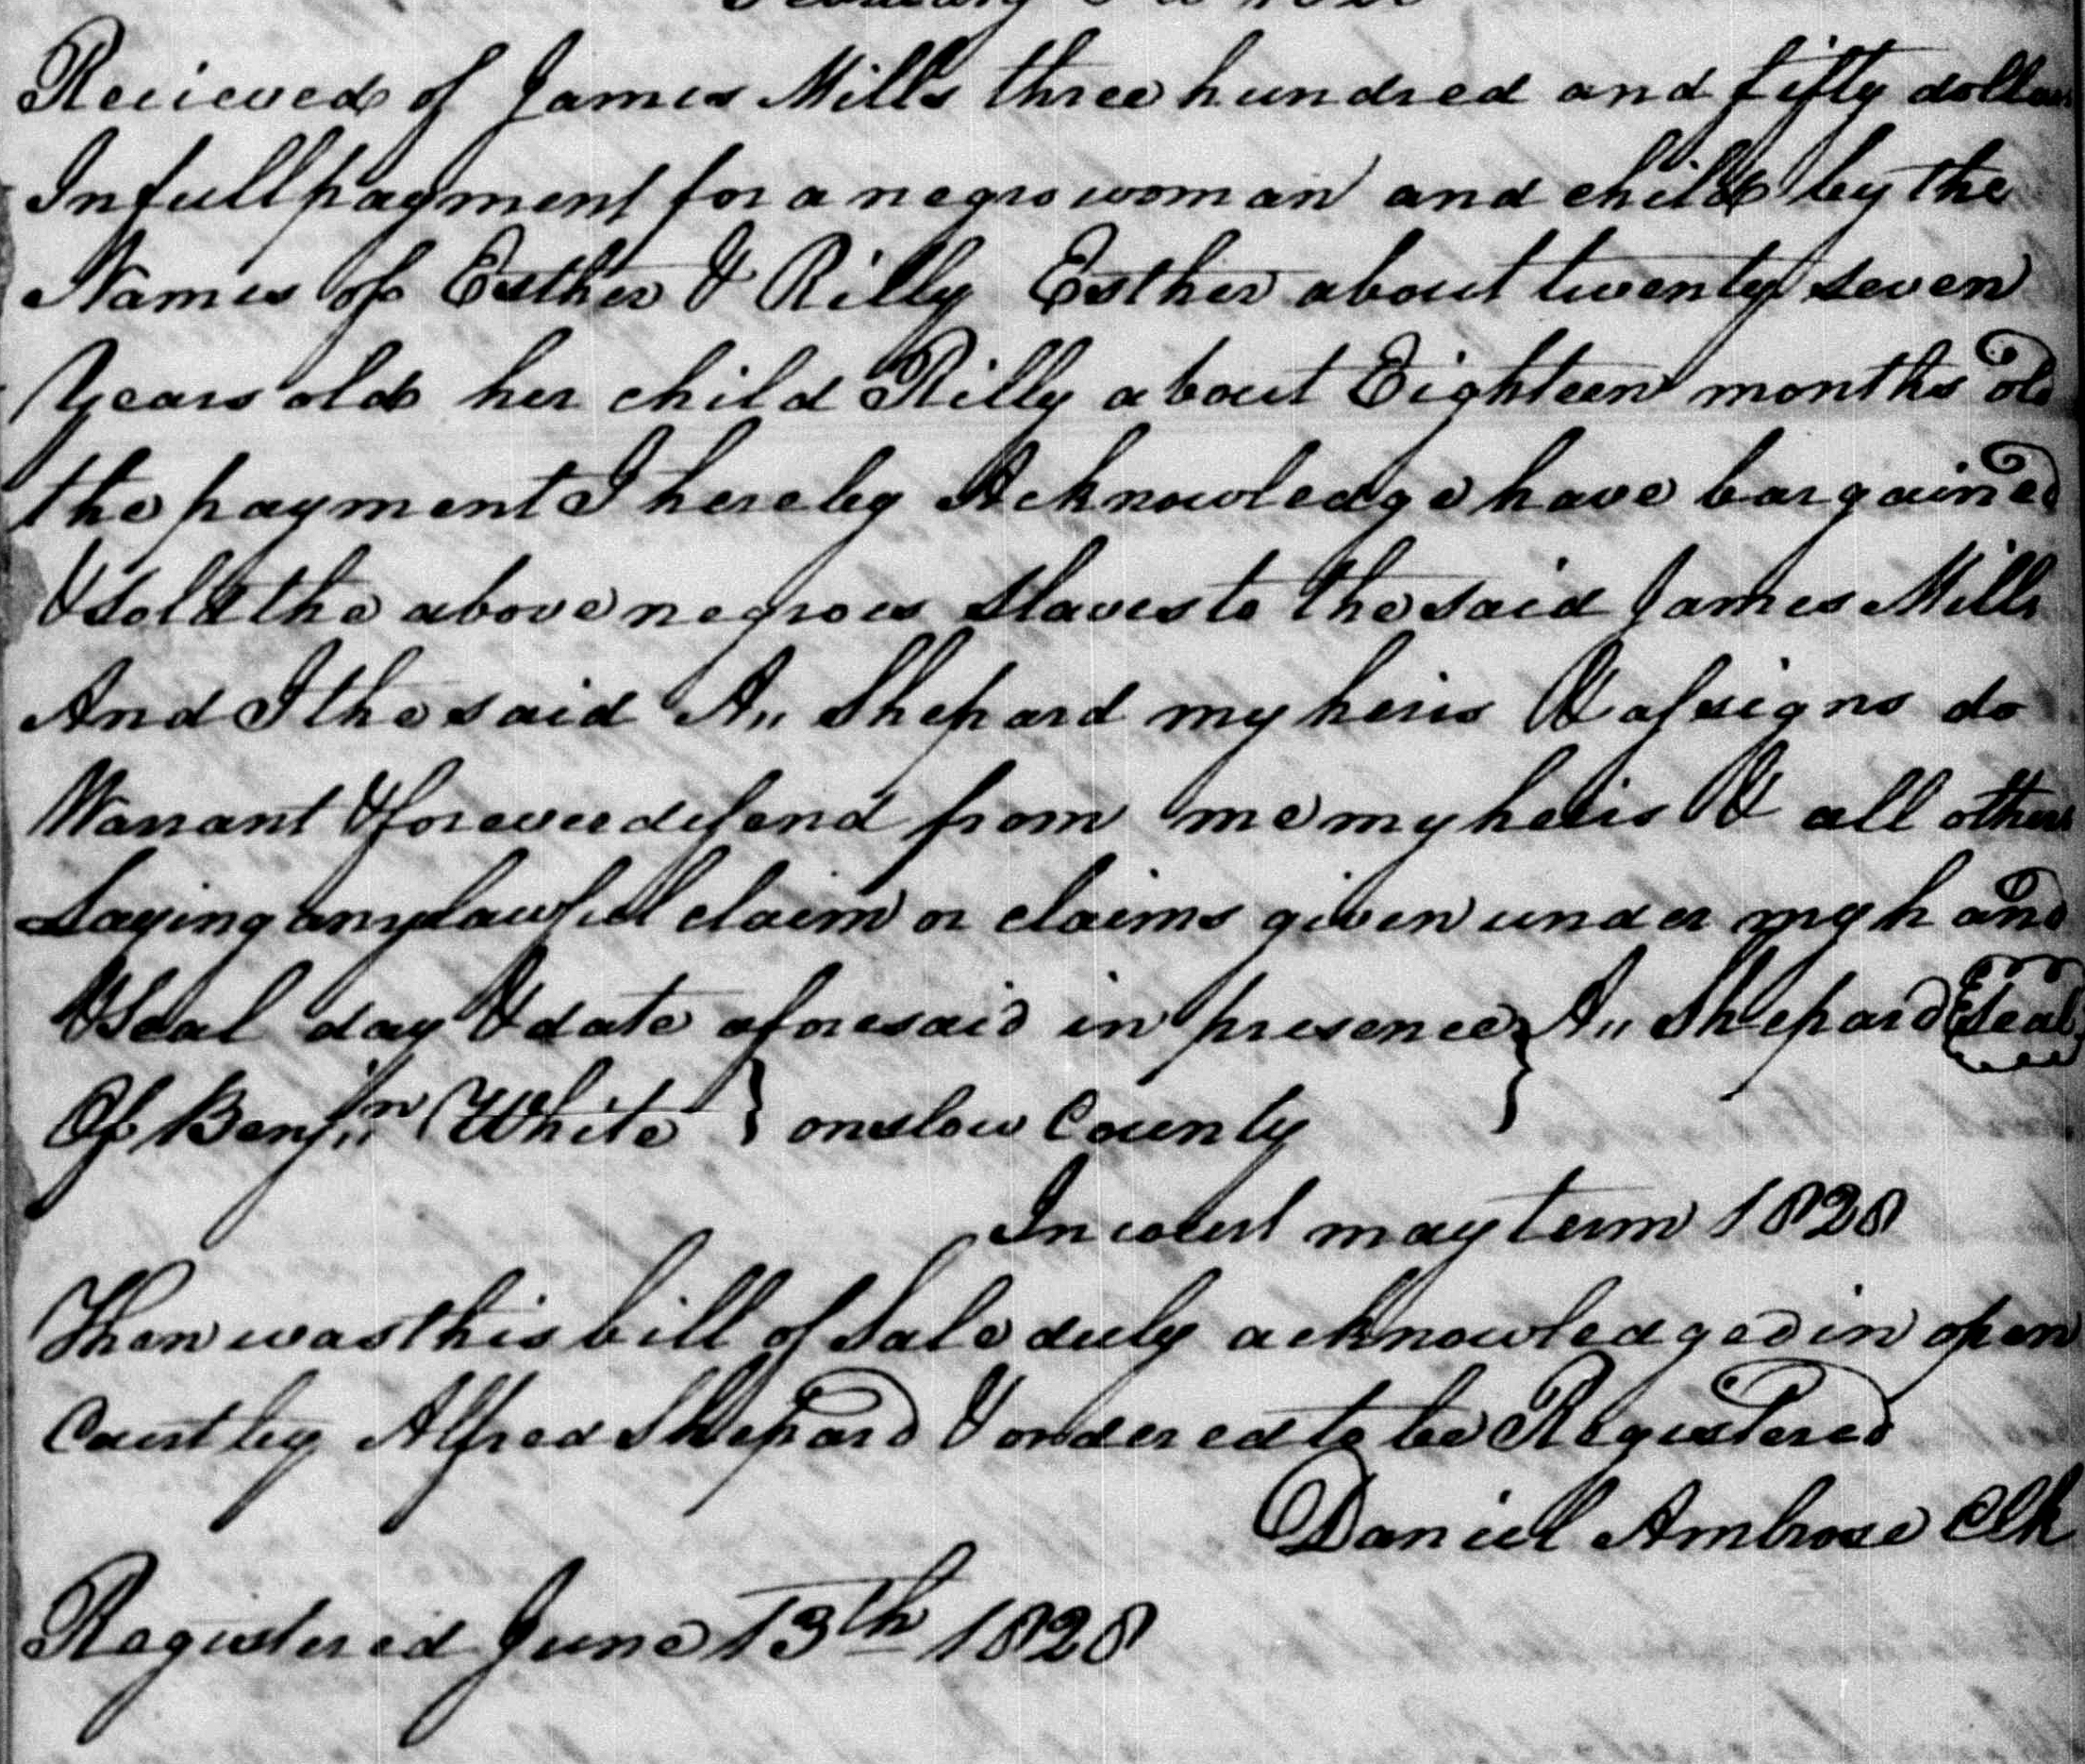 Recieved of James Mills three hundred and fifty dollars
In full payment for a negro woman and child by the
Names of Esther & Rilly Esther about twenty seven
Years old her child Rilly about Eighteen months old
the payment I hereby Acknowledge have bargained
& sold the above negroes slaves to the said James Mills
And I the said A,, Shepard my heirs & assigns do
Warrant & forever defend from me my heirs & all others
Laying any lawful claim or claims given under my hand
& Seal day & date aforesaid in presence } A,, Shepard Seal
Of Benjn White } onslow County
In court may term 1828
Then was this bill of Sale duly acknowledged in open
Court by Alfred Shepard & ordered to be Registered
Daniel Ambrose Clk
Registered June 13th 1828